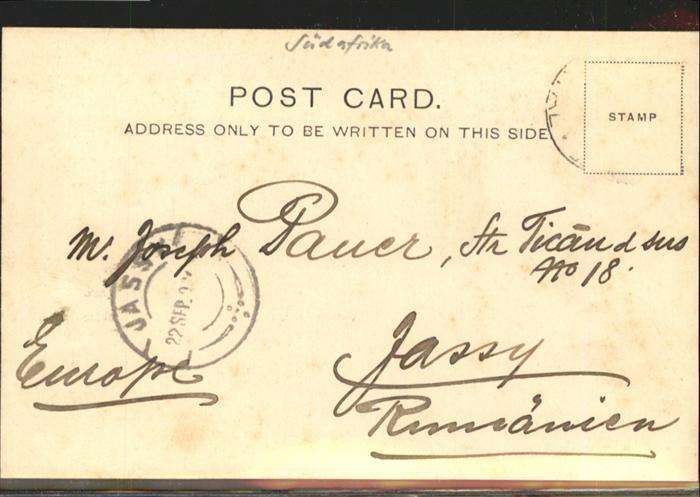 Südafrika
POST CARD.
ADDRESS ONLY TO BE WRITTEN ON THIS SIDE
STAMP
Mr. Joseph Pauer, Str
No 18.
JASSY
22 SEP.
Europe
Jassy
Rumänien